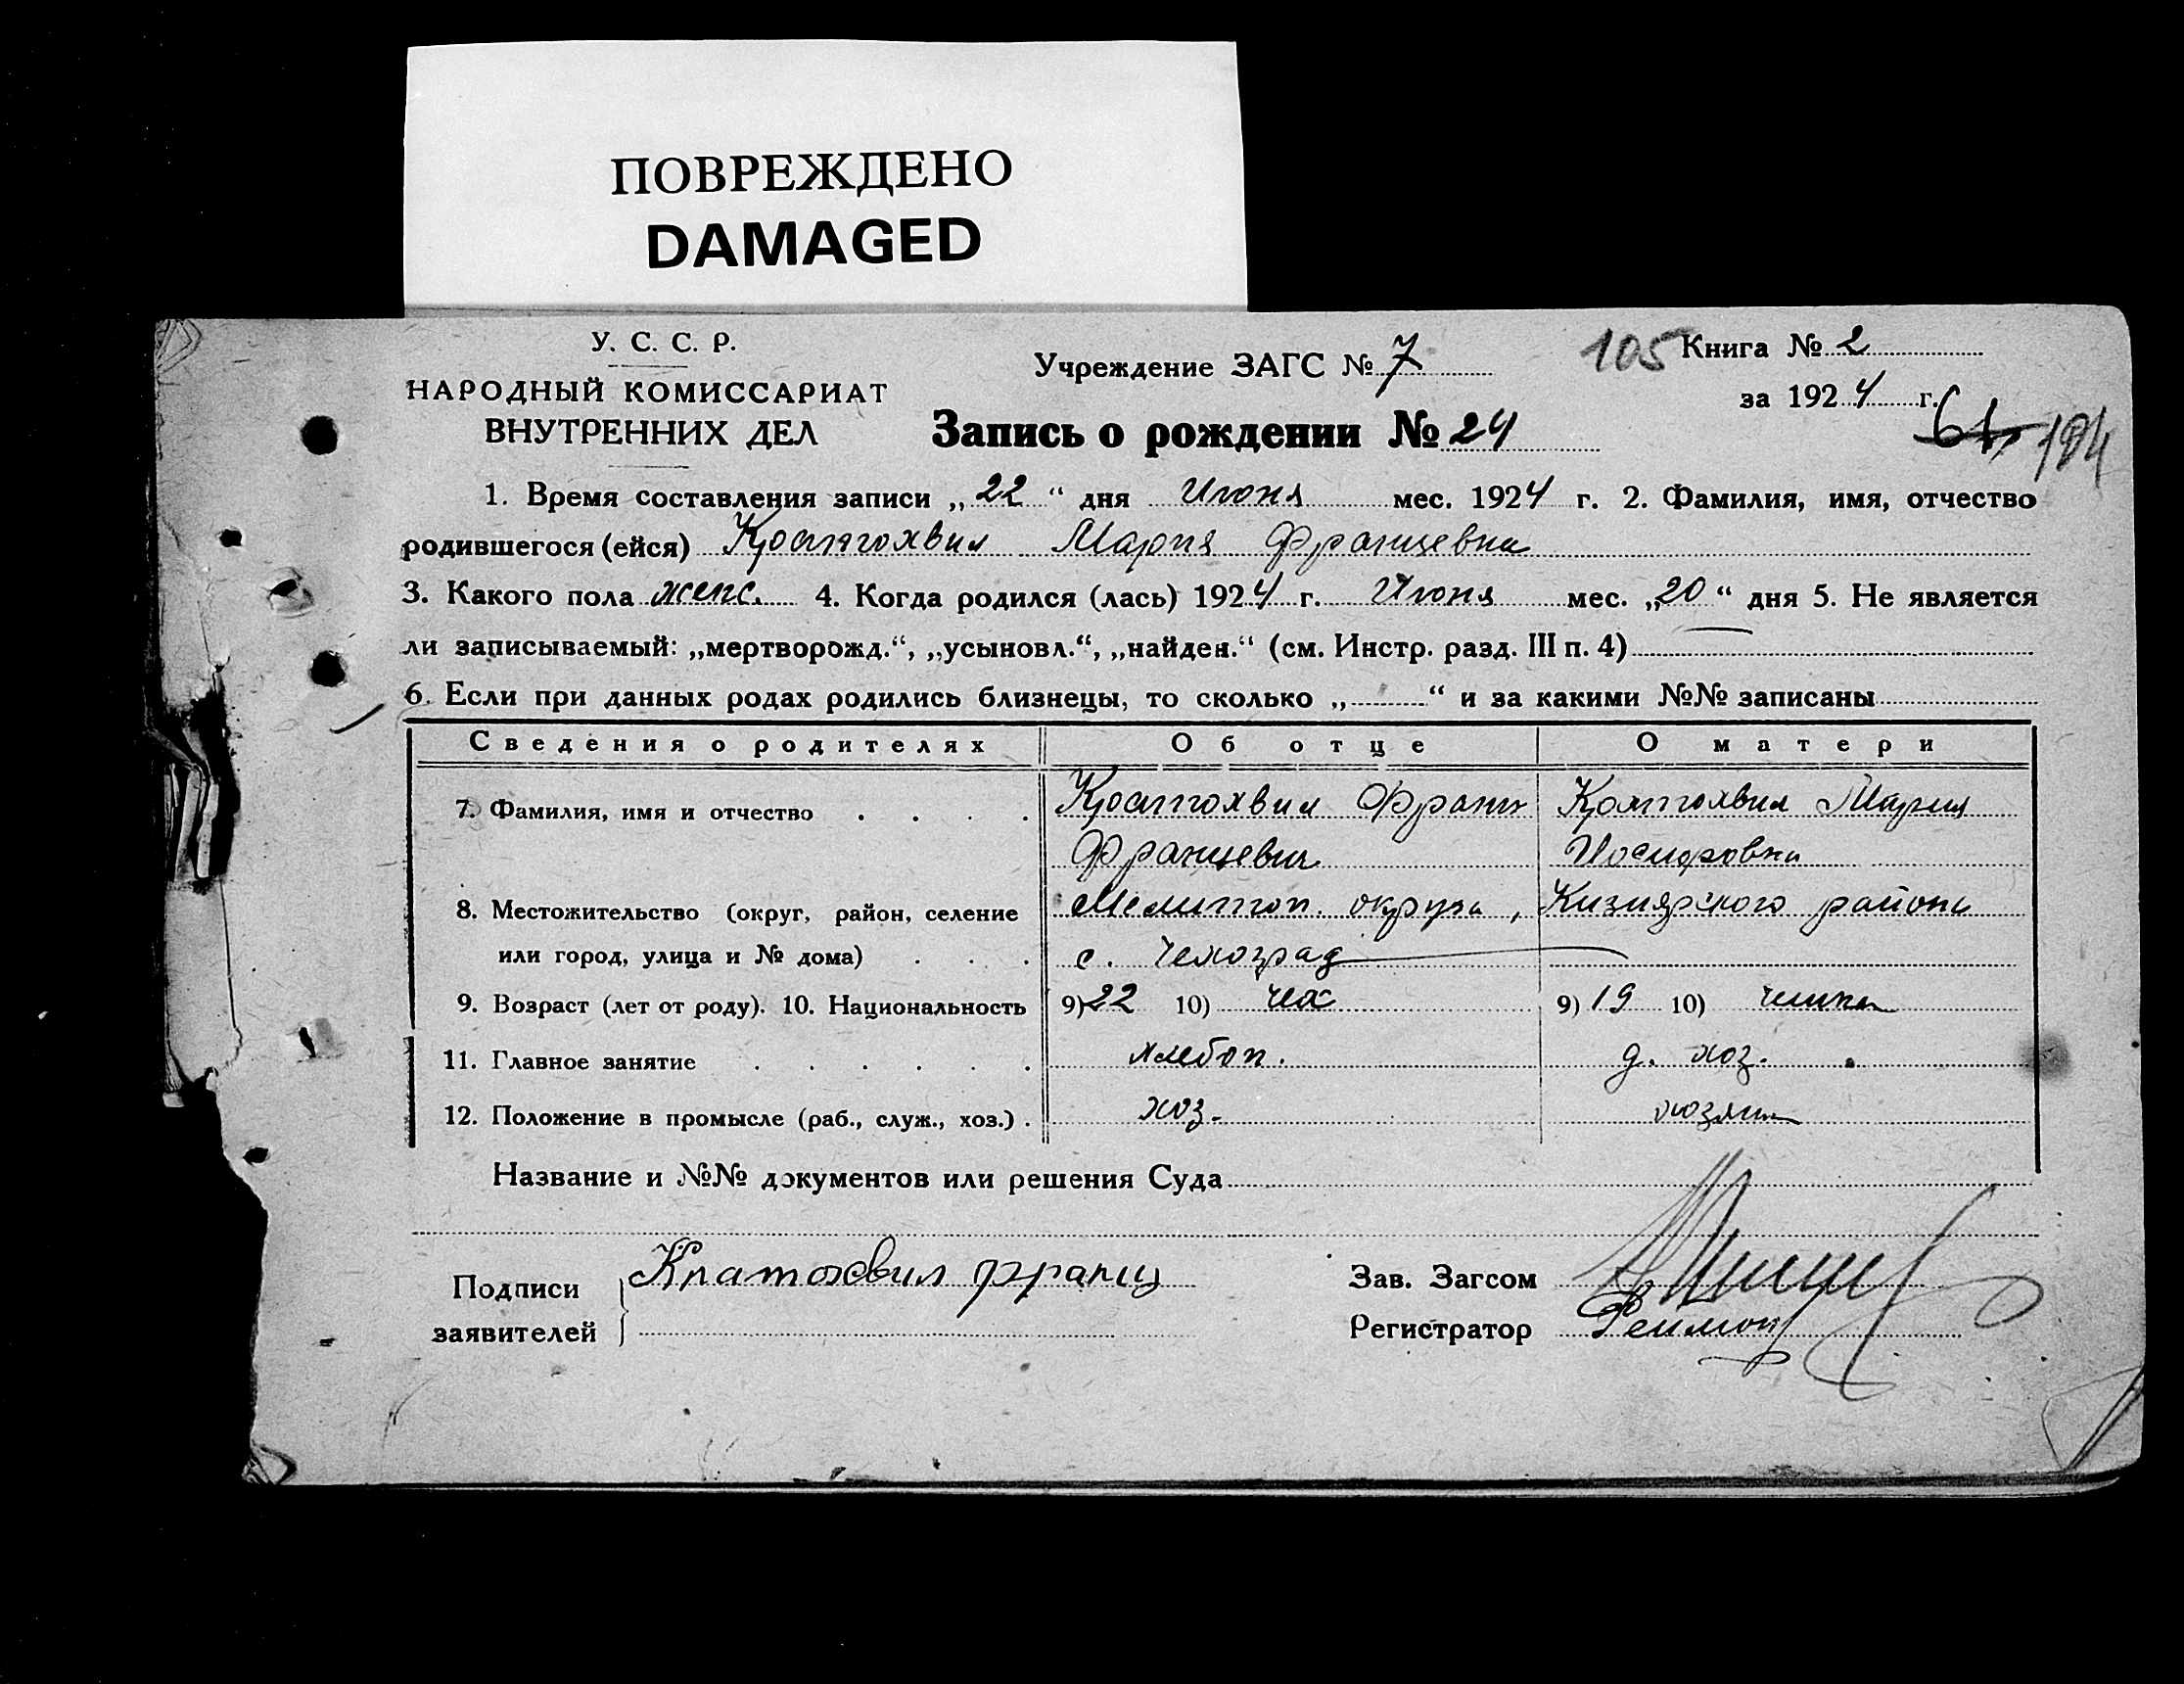 ПОВРЕЖДЕНО
DAMAGED
У. С. С. Р.
НАРОДНЫЙ КОМИССАРИАТ
ВНУТРЕННИХ ДЕЛ
Учреждение ЗАГС № 7
105 Книга № 2
за 1924 г.
61 184
Запись о рождении № 24
1. Время составления записи „22“ дня Июня мес. 1924 г. 2. Фамилия, имя, отчество
родившегося (ейся) Кратохвил Мария Францевна
3. Какого пола женс. 4. Когда родился (лась) 1924 г. Июня мес. „20“ дня 5. Не является
ли записываемый: „мертворожд.“, „усыновл.“, „найден.“ (см. Инстр. разд. III п. 4) —
6. Если при данных родах родились близнецы, то сколько „ “ и за какими №№ записаны
Сведения о родителях Об отце О матери
7. Фамилия, имя и отчество . . . . Кратохвил Франц Кратохвил Мария
Францевич Иосифовна
8. Местожительство (округ, район, селение Мелитоп. округа, Кизиярского района
или город, улица и № дома) . . . с. Чехоград
9. Возраст (лет от роду). 10. Национальность 9) 22 10) чех 9) 19 10) чешка
11. Главное занятие . . . . . . хлебоп. д. хоз.
12. Положение в промысле (раб., служ., хоз.) . хоз. хозяйка
Название и №№ документов или решения Суда
Подписи заявителей } Кратохвил Франц
Зав. Загсом
Регистратор